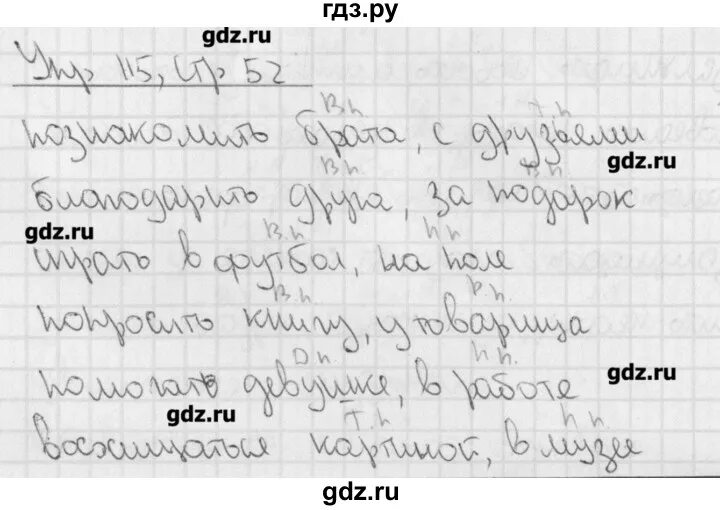 гдз.ру
gdz.ru
Упр 115, стр 52
В.п. Т.п.
познакомить брата, с друзьями
gdz.ru
В.п. В.п.
благодарить друга, за подарок
gdz.ru
В.п. П.п.
играть в футбол, на поле
В.п. Р.п.
попросить книгу, у товарища
Д.п. П.п.
помогать девушке, в работе
gdz.ru
gdz.ru
Т.п. П.п.
восхищаться картиной, в музее
gdz.ru